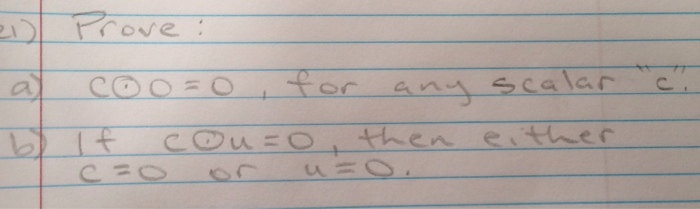 21) Prove:
a) c⊙0=0, for any scalar "c".
b) If c⊙u=0, then either
c=0 or u=0.